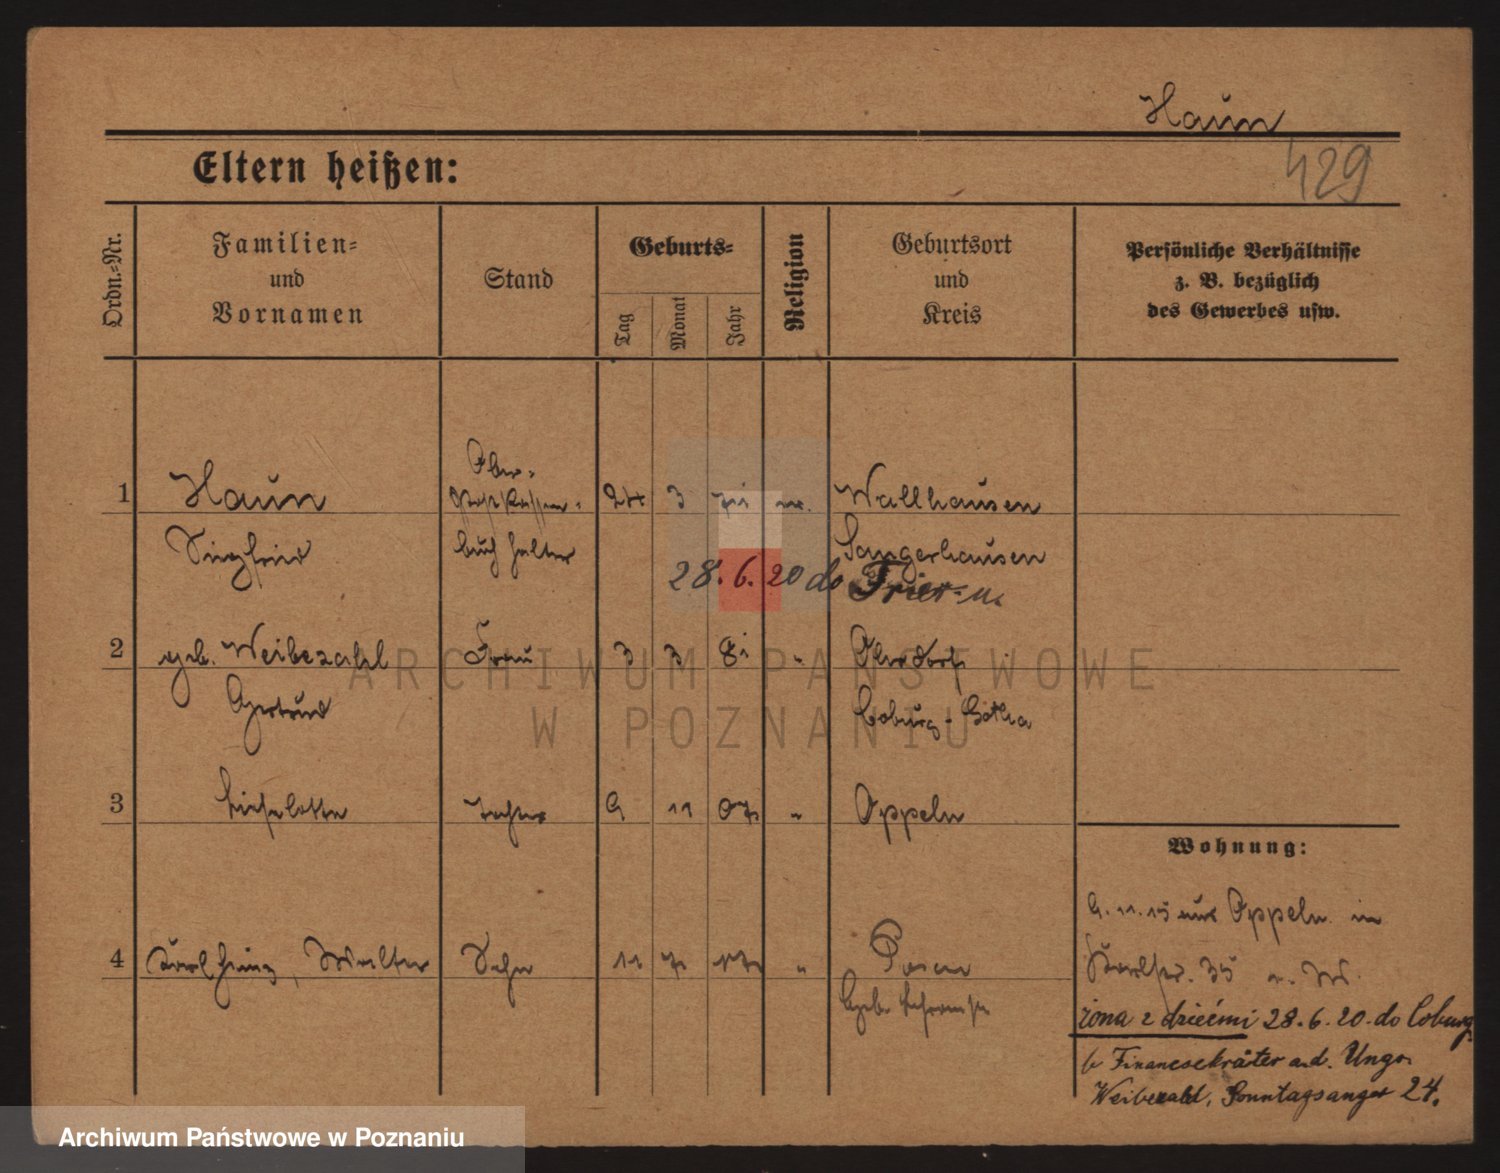 Haun
429
Eltern heißen:
Ordn.-Nr.
Familien-
und
Vornamen
Stand
Geburts-
Tag
Monat
Jahr
Religion
Geburtsort
und
Kreis
Persönliche Verhältnisse
z. B. bezüglich
des Gewerbes usw.
1 Haun Ober- 24 3 71 Wallhausen
Siegfried
Postkassen-
buchhalter
Sangerhausen
28.6.20 do Trier
2 geb. Weibezahl Frau 3 3 81 " Oberdorf
Gertrud Coburg-Gotha
3 Lieselotte Tochter 9 11 07 " Oppeln
4 Karl Heinz, Walter Sohn 11 7 17 " Posen
Wohnung:
9.11.15 aus Oppeln in
Karlstr. 35
żona z dziećmi 28.6.20 do Coburg
b Financsekräter a.d. Ungo
Weibezahl, Sonntagsanger 24.
ARCHIWUM PAŃSTWOWE
W POZNANIU
Archiwum Państwowe w Poznaniu